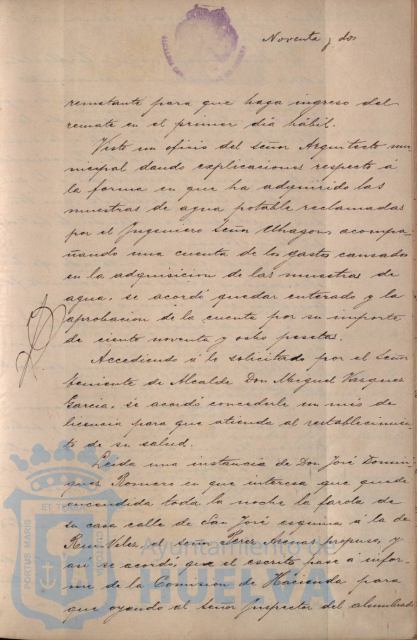 Noventa y dos
rematante para que haga ingreso del
remate en el primer dia hábil.
Visto un oficio del Señor Arquitecto mu-
nicipal dando explicaciones respecto á
la forma en que ha adquirido las
muestras de agua potable reclamadas
por el Ingeniero Señor Uhagon, acompa-
ñando una cuenta de los gastos causados
en la adquisicion de las muestras de
agua, se acordó quedar enterado y la
aprobacion de la cuenta por su importe
de ciento noventa y ocho pesetas.
Accediendo á lo solicitado por el Señor
Teniente de Alcalde Don Miguel Vazquez
Garcia, se acordó concederle un mes de
licencia para que atienda al restablecimien-
to de su salud.
Leida una instancia de Don José Domin-
guez Romero en que interesa que quede
encendida toda la noche la farola de
su casa calle de San José esquina á la de
Rui-Velez, el señor Perez propuso, y
así se acordó, que el escrito pase á infor-
me de la Comision de Hacienda para
que oyendo al señor Inspector del alumbrado
PORTUS MARIS
Ayuntamiento de
HUELVA